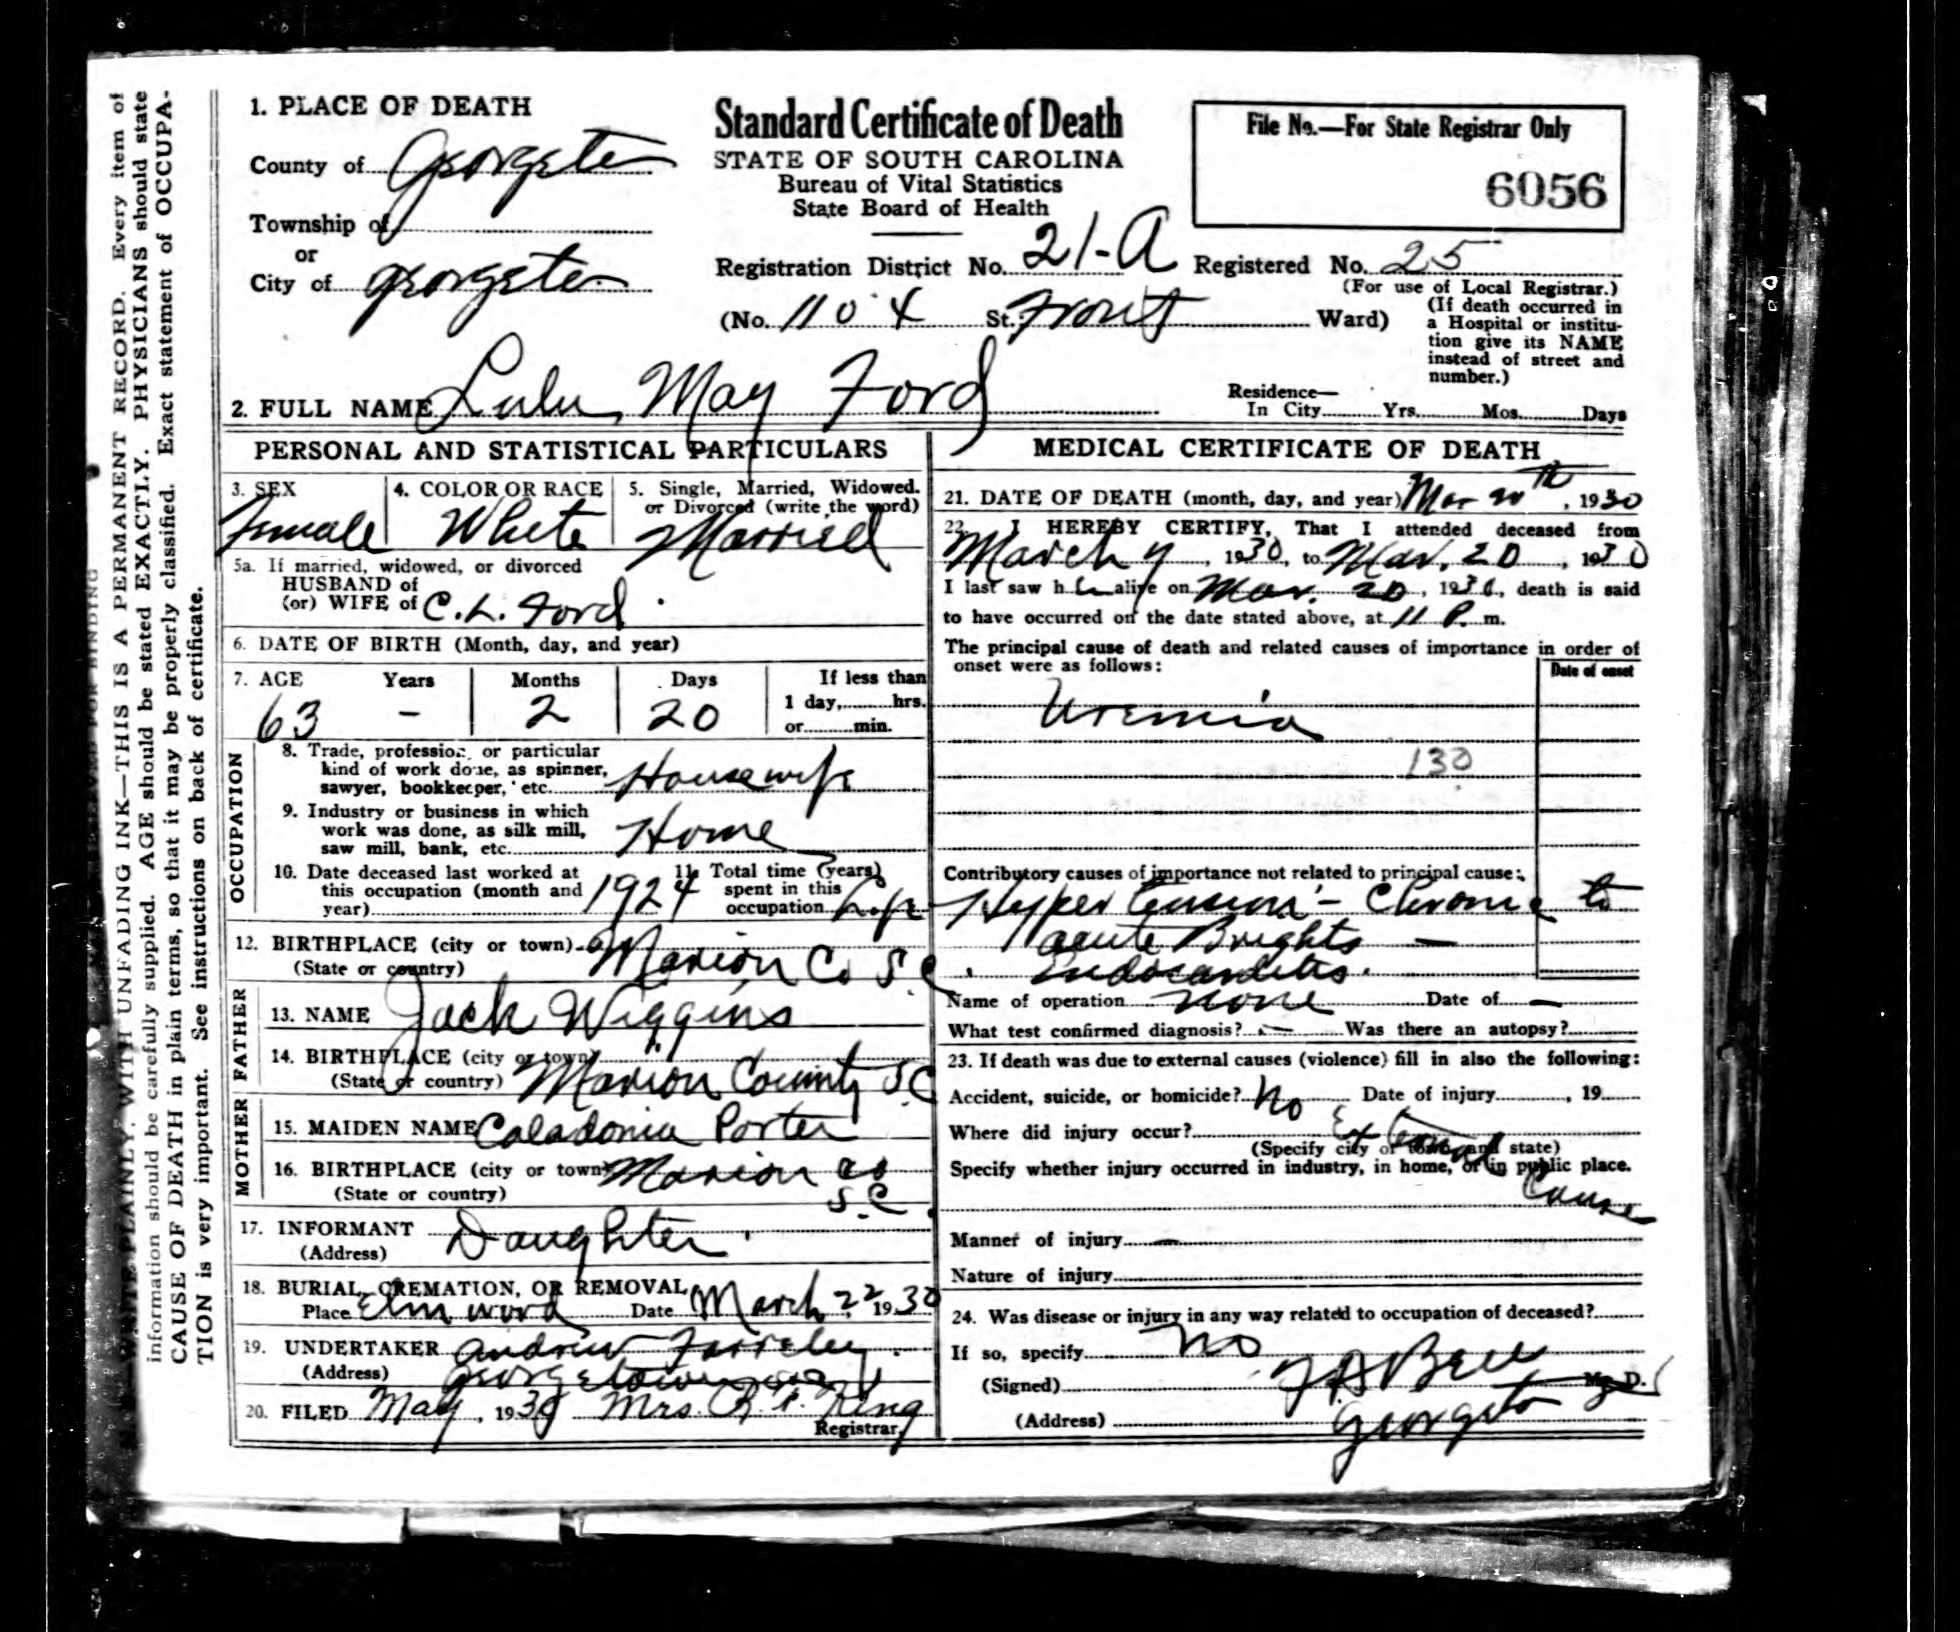 WRITE PLAINLY, WITH UNFADING INK—THIS IS A PERMANENT RECORD. Every item of
information should be carefully supplied. AGE should be stated EXACTLY. PHYSICIANS should state
CAUSE OF DEATH in plain terms, so that it may be properly classified. Exact statement of OCCUPA-
TION is very important. See instructions on back of certificate.
1. PLACE OF DEATH
County of Georgeto
Township of
or
City of Georgeto
Standard Certificate of Death
STATE OF SOUTH CAROLINA
Bureau of Vital Statistics
State Board of Health
File No.—For State Registrar Only
6056
Registration District No. 21-A Registered No. 25
(For use of Local Registrar.)
(No. 1104 St. Front Ward)
(If death occurred in
a Hospital or institu-
tion give its NAME
instead of street and
number.)
2. FULL NAME Lulu May Ford
Residence—
In City Yrs. Mos. Days
PERSONAL AND STATISTICAL PARTICULARS
3. SEX 4. COLOR OR RACE 5. Single, Married, Widowed.
or Divorced (write the word)
Female White Married
5a. If married, widowed, or divorced
HUSBAND of
(or) WIFE of C. L. Ford
6. DATE OF BIRTH (Month, day, and year)
7. AGE Years Months Days If less than
63 - 2 20 1 day, hrs.
or min.
OCCUPATION
8. Trade, profession, or particular
kind of work done, as spinner,
sawyer, bookkeeper, etc. Housewife
9. Industry or business in which
work was done, as silk mill,
saw mill, bank, etc. Home
10. Date deceased last worked at
this occupation (month and
year) 1924
11. Total time (years)
spent in this
occupation Life
12. BIRTHPLACE (city or town)
(State or country) Marion Co S.C.
FATHER
13. NAME Jack Wiggins
14. BIRTHPLACE (city or town)
(State or country) Marion County S.C
MOTHER
15. MAIDEN NAME Caladonia Porter
16. BIRTHPLACE (city or town) Marion Co
(State or country) S.C.
17. INFORMANT Daughter
(Address)
18. BURIAL, CREMATION, OR REMOVAL
Place Elmwood Date March 22 1930
19. UNDERTAKER Andrew
(Address) Georgetown
20. FILED May, 1930 Mrs. King
Registrar
MEDICAL CERTIFICATE OF DEATH
21. DATE OF DEATH (month, day, and year) Mar 20th, 1930
22. I HEREBY CERTIFY, That I attended deceased from
March, 1930, to Mar. 20, 1930
I last saw her alive on Mar. 20, 1930, death is said
to have occurred on the date stated above, at 11 P. m.
The principal cause of death and related causes of importance in order of
onset were as follows:
Date of onset
Uremia
130
Contributory causes of importance not related to principal cause:
Hypertension - Chronic to
acute Brights —
Endocarditis.
Name of operation none Date of —
What test confirmed diagnosis? — Was there an autopsy?
23. If death was due to external causes (violence) fill in also the following:
Accident, suicide, or homicide? No Date of injury, 19
Where did injury occur? External
(Specify city or town and state)
Specify whether injury occurred in industry, in home, or in public place.
Cause
Manner of injury —
Nature of injury
24. Was disease or injury in any way related to occupation of deceased?
If so, specify No
(Signed) Bell M. D.
(Address) Georgeto